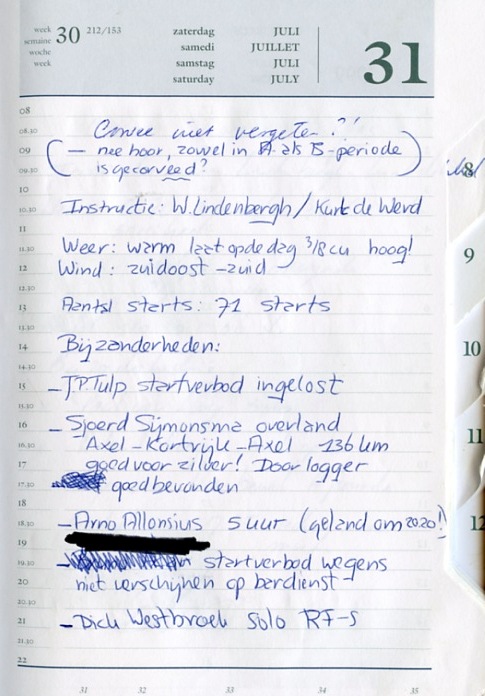 week 30 212/153
semaine
woche
week
zaterdag JULI
samedi JUILLET
samstag JULI
saturday JULY
31
08
08.30 Corvee niet vergeten?!
09 (— nee hoor, zowel in A als B-periode
09.30 is gecorveed?)
10
10.30 Instructie: W. Lindenbergh / Kurt de Werd
11
11.30 Weer: warm laat op de dag 3/8 cu hoog!
12 Wind: zuidoost - zuid
12.30
13 Aantal starts: 71 starts
13.30
14 Bijzonderheden:
14.30
15 - J.P. Tulp startverbod ingelost
15.30
16 - Sjoerd Sijmonsma overland
16.30 Axel - Kortrijk - Axel 136 km
17 goed voor zilver! Door logger
17.30 goed bevonden
18
18.30 - Arno Allonsius 5 uur (geland om 2020!)
19
19.30 - startverbod wegens
20 niet verschijnen op bardienst
20.30
21 - Dick Westbroek solo RF-5
21.30
22
8
9
10
11
12
31 32 33 34 35